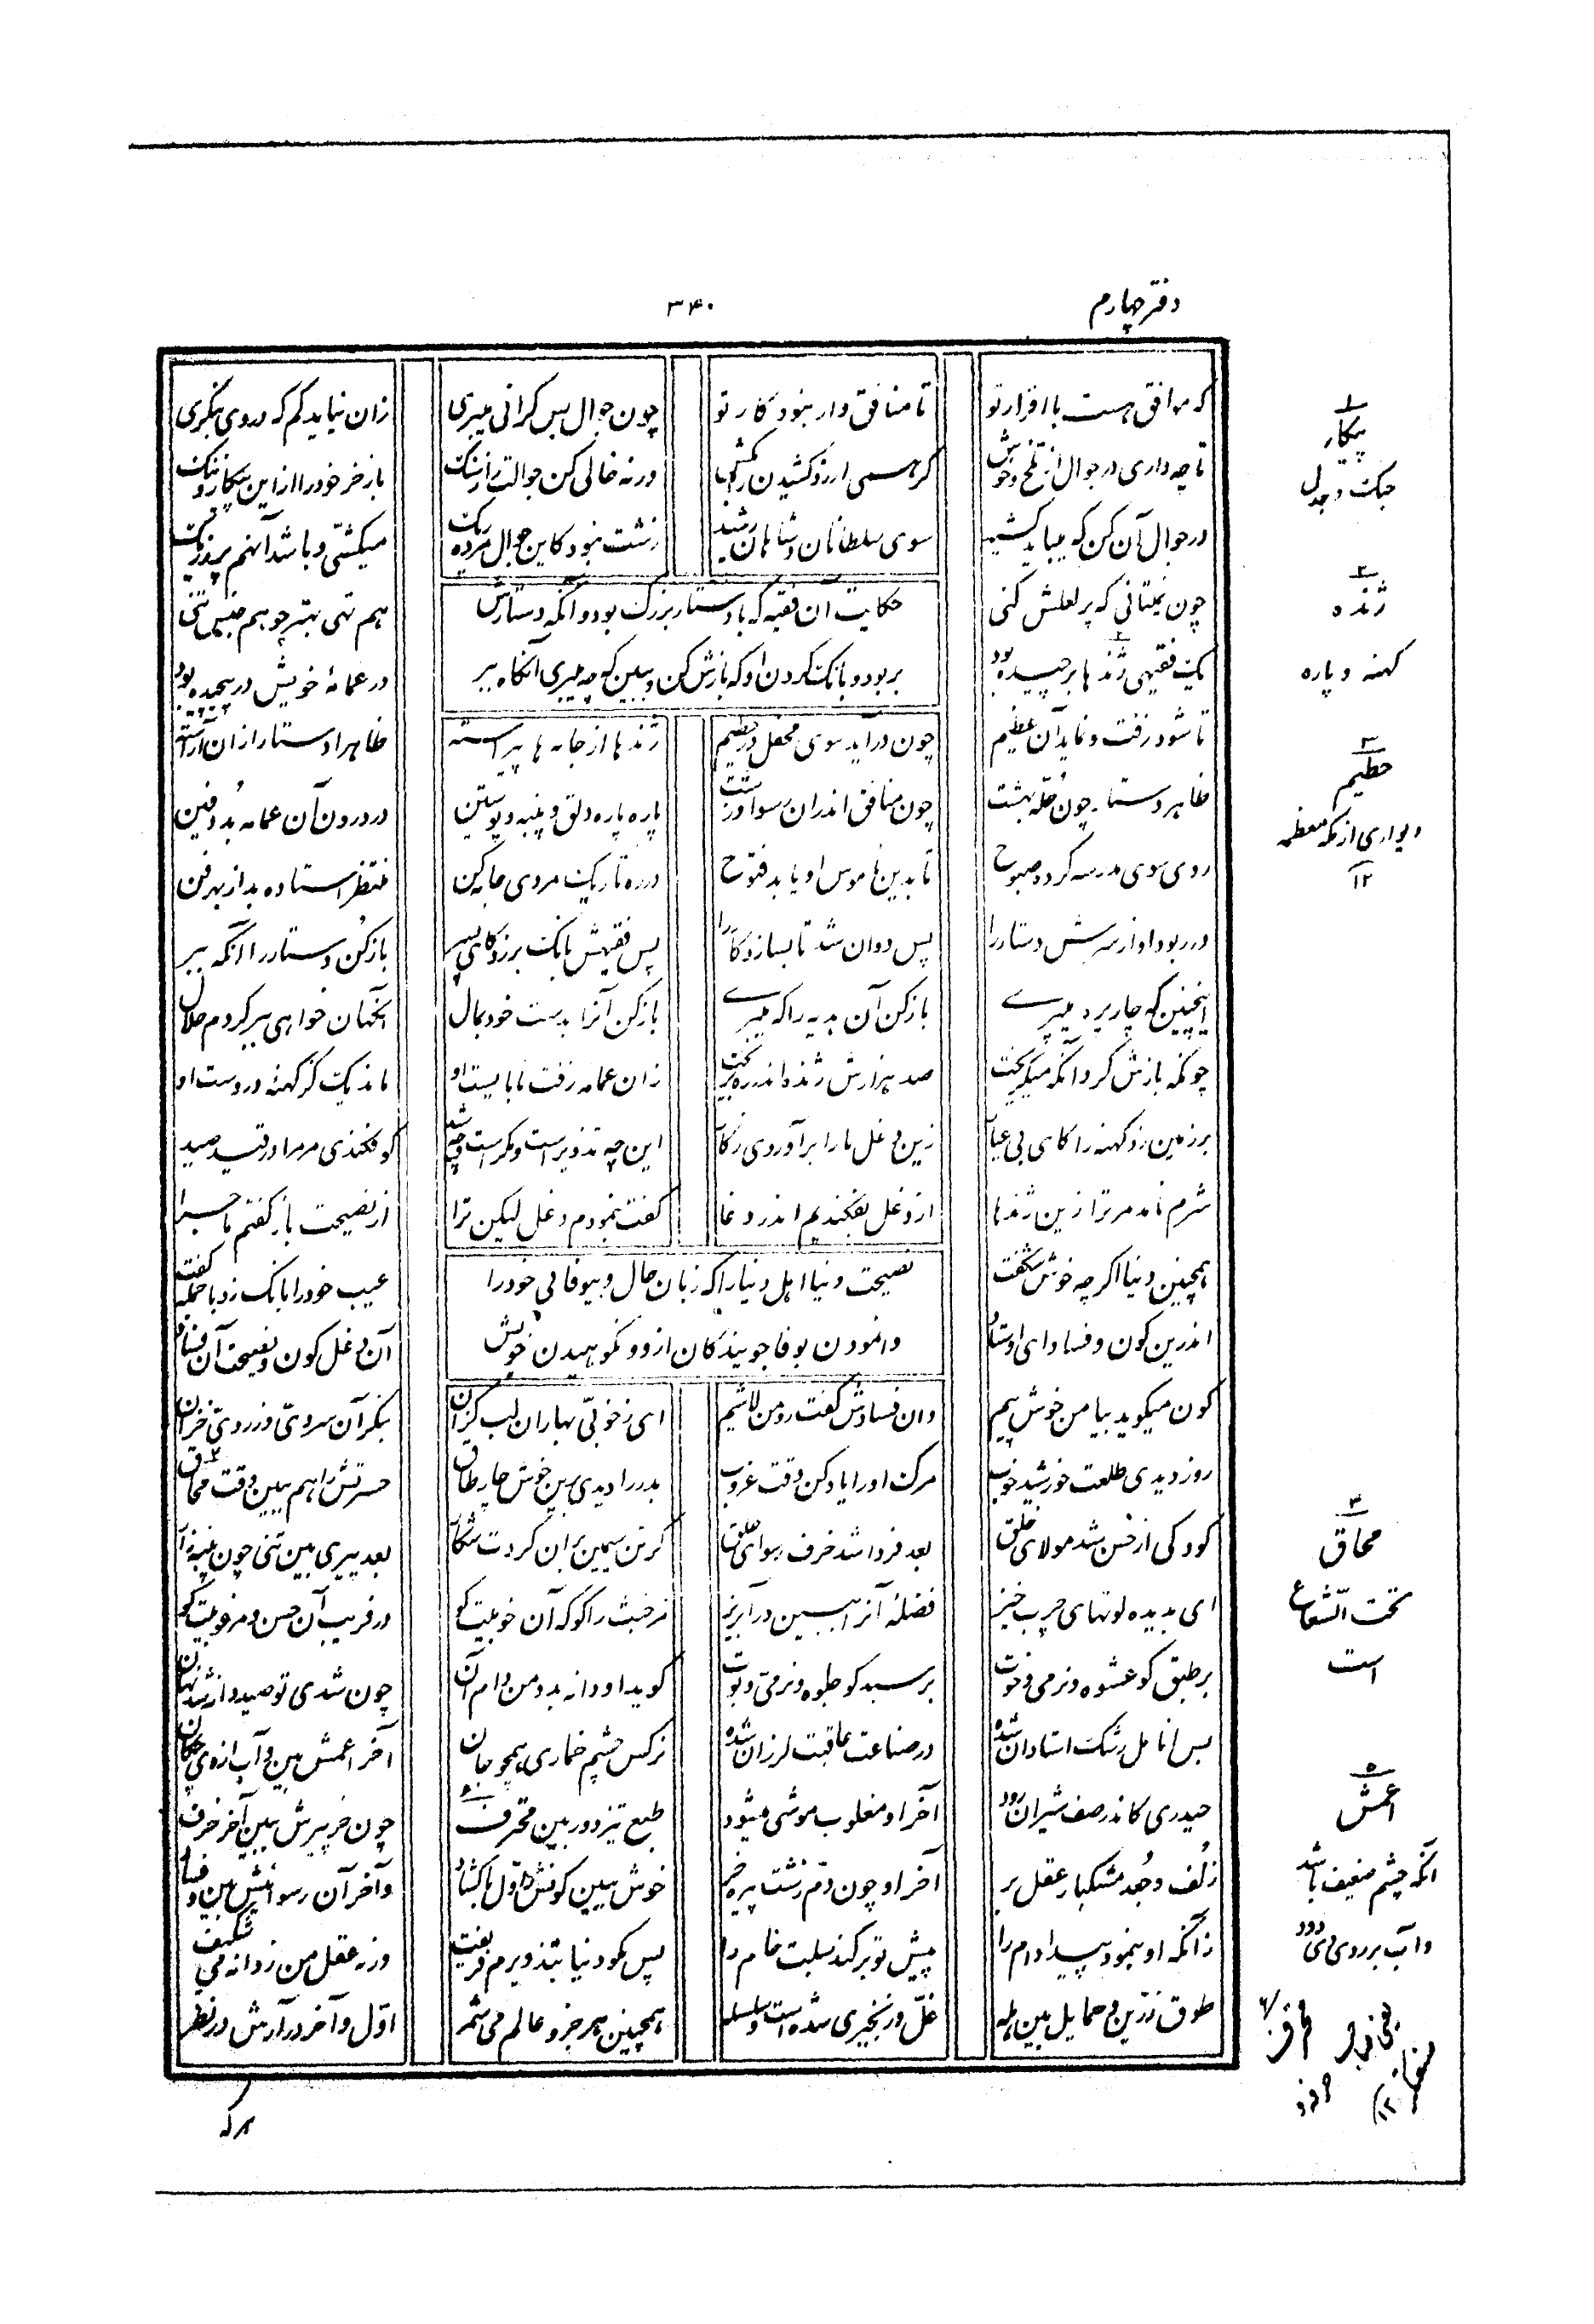 دفتر چهارم
۳۴۰
که موافق هست با اقرار تو
تا منافق وار نبود کار تو
چون جوال بس گرانی میبری
زان نیاید کم که در وی بنگری
تا چه داری در جوال از تلخ و خوش
گر همی ارزد کشیدن را بکش
ورنه خالی کن جوالت را ز سنگ
باز خر خود را ازین پیکار و ننگ
در جوال آن کن که میباید کشید
سوی سلطانان و شاهان رشید
زشت نبود کاین جوال مرده ریگ
میکشی و باشد آنهم پر ز ریگ
چون نمیتانی که پر لعلش کنی
هم تهی بهتر چو هم جنس تنی
حکایت آن فقیه که با دستار بزرگ بود و آنکه دستارش
بربود و بانگ کردن او که بازش کن و ببین که چه میبری آنگاه ببر
یک فقیهی ژندها برچیده بود
در عمامهٔ خویش در پیچیده بود
تا شود زفت و نماید آن عظیم
چون درآید سوی محفل در حطیم
ژندها از جامه ها پیراسته
ظاهرا دستار ازان آراسته
ظاهر دستار چون حلهٔ بهشت
چون منافق اندران رسوا و زشت
پاره پاره دلق و پنبه و پوستین
در درون آن عمامه بد دفین
روی سوی مدرسه کرده صبوح
تا بدین ناموس او یابد فتوح
در ره تاریک مردی جامه کن
منتظر استاده بد از بهر فن
در ربود او از سرش دستار را
پس دوان شد تا بسازد کار را
پس فقیهش بانگ برزد کای پسر
باز کن دستار را آنگه ببر
اینچنین که چار پره میپری
باز کن آن هدیه را که میبری
باز کن آنرا بدست خود بمال
آنگهان خواهی ببر کردم حلال
چونکه بازش کرد آنکه میگریخت
صد هزارش ژنده اندر ره بریخت
زان عمامه زفت نابایست او
ماند یک گز کهنه در دست او
بر زمین زد کهنه را کای بی عیار
زین دغل ما را برآوردی ز کار
این چه تزویر است و مکر است و چه شید
که فکندی مر مرا در قید صید
شرم نامد مر ترا زین ژندها
از دغل بفکندیم اندر دغا
گفت بنمودم دغل لیکن ترا
از نصیحت باز گفتم ماجرا
نصیحت دنیا اهل دنیا را که زبان حال و بیوفائی خود را
وانمودن بوفا جویندگان ازو و نکوهیدن خویش
همچنین دنیا اگر چه خوش شگفت
عیب خود را بانگ زد با جمله گفت
اندرین کون و فساد ای اوستاد
آن دغل کون و نصیحت آن فساد
کون میگوید بیا من خوش پیم
وان فسادش گفت رو من لاشیم
ای ز خوبی بهاران لب گزان
بنگر آن سردی و زردی خزان
روز دیدی طلعت خورشید خوب
مرگ او را یاد کن وقت غروب
بدر را دیدی برین خوش چار طاق
حسرتش را هم ببین وقت محاق
کودکی از حسن شد مولای خلق
بعد فردا شد خرف رسوای خلق
گر تن سیمین بران کردت شکار
بعد پیری بین تنی چون پنبه زار
ای بدیده لوتهای چرب خیز
فضلهٔ آنرا ببین در آبریز
مر خبث را گو که آن خوبیت کو
در فریب آن حسن و مرغوبیت کو
بر طبق کو عشوه و نرمی و خوت
بر سبد کو جلوه و نرمی و بوت
گوید او دانه بد و من دام آن
چون شدی تو صید دانه شد نهان
بس انامل رشک استادان شده
در صناعت عاقبت لرزان شده
نرگس چشم خماری همچو جان
آخر اعمش بین و آب از وی چکان
حیدری کاندر صف شیران رود
آخر او مغلوب موشی میشود
طبع تیز دوربین محترف
چون خر پیرش ببین آخر خرف
زلف و جعد مشکبار عقل بر
آخر او چون دم زشت پیره خر
خوش ببین کونش اول با گشاد
وآخر آن رسوائیش بین و فساد
زانکه او بنمود پیدا دام را
پیش تو برکند سبلت خام را
پس مگو دنیا بتزویرم فریفت
ورنه عقل من ز دانه می شکیفت
طوق زرین و حمایل بین هله
غل و زنجیری شده است و سلسله
همچنین هر جزو عالم می شمر
اول و آخر در آرش در نظر
هرکه
۱
پیکار
جنگ و جدل
۲
ژنده
کهنه و پاره
۳
حطیم
دیواری از مکه معظمه
۱۲
۴
محاق
تحت الشعاع
است
۵
اعمش
آنکه چشم ضعیف باشد
و آب بر روی وی دود